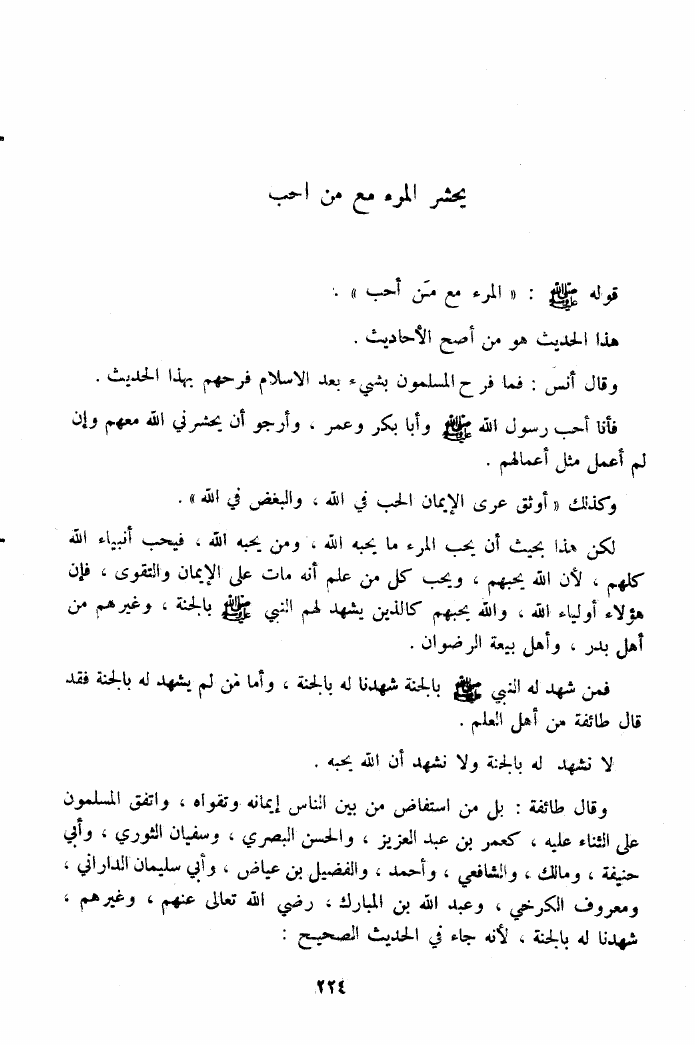 يحشر المرء مع من احب
قوله ﷺ : « المرء مع مَن أحب » .
هذا الحديث هو من أصح الأحاديث .
وقال أنس : فما فرح المسلمون بشيء بعد الاسلام فرحهم بهذا الحديث .
فأنا أحب رسول الله ﷺ وأبا بكر وعمر ، وأرجو أن يحشرني الله معهم وإن
لم أعمل مثل أعمالهم .
وكذلك « أوثق عرى الإيمان الحب في الله ، والبغض في الله » .
لكن هذا بحيث أن يحب المرء ما يحبه الله ، ومن يحبه الله ، فيحب أنبياء الله
كلهم ، لأن الله يحبهم ، ويحب كل من علم أنه مات على الإيمان والتقوى ، فإن
هؤلاء أولياء الله ، والله يحبهم كالذين يشهد لهم النبي ﷺ بالجنة ، وغيرهم من
أهل بدر ، وأهل بيعة الرضوان .
فمن شهد له النبي ﷺ بالجنة شهدنا له بالجنة ، وأما مَن لم يشهد له بالجنة فقد
قال طائفة من أهل العلم .
لا نشهد له بالجنة ولا نشهد أن الله يحبه .
وقال طائفة : بل من استفاض من بين الناس إيمانه وتقواه ، واتفق المسلمون
على الثناء عليه ، كعمر بن عبد العزيز ، والحسن البصري ، وسفيان الثوري ، وأبي
حنيفة ، ومالك ، والشافعي ، وأحمد ، والفضيل بن عياض ، وأبي سليمان الداراني ،
ومعروف الكرخي ، وعبد الله بن المبارك ، رضي الله تعالى عنهم ، وغيرهم ،
شهدنا له بالجنة ، لأنه جاء في الحديث الصحيح :
٢٢٤